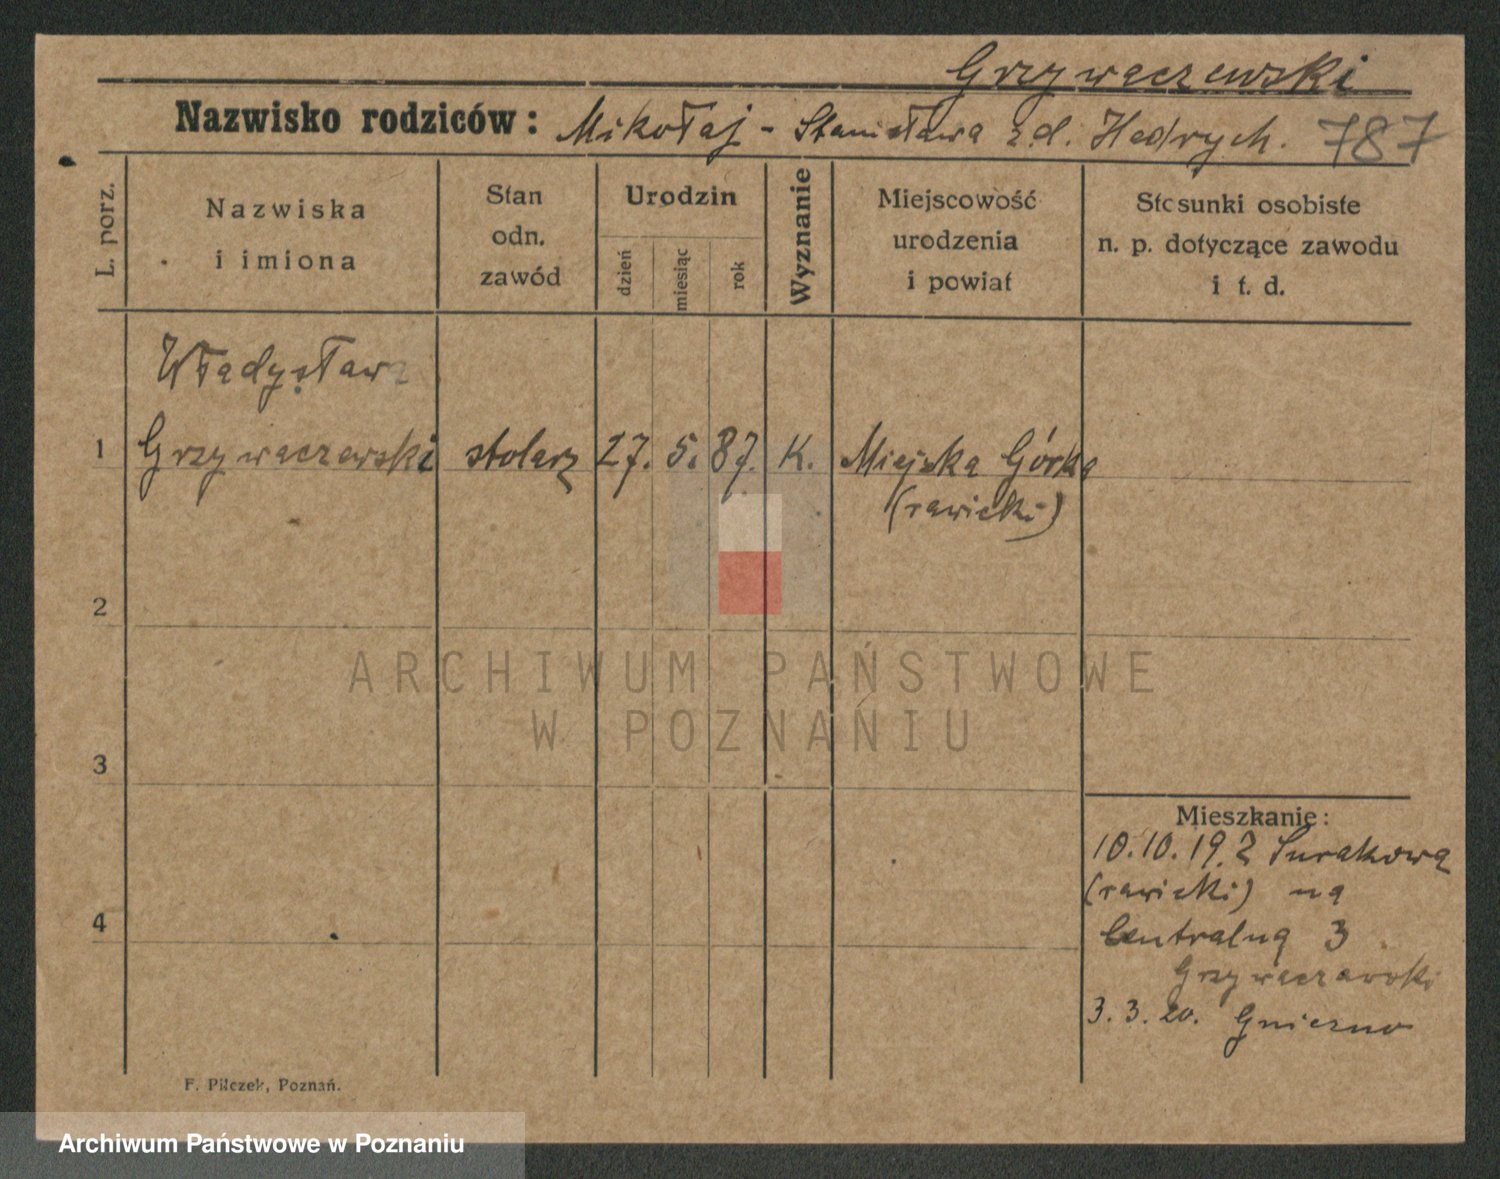 Grzywaczewski
Nazwisko rodziców: Mikołaj - Stanisława z d. Hedrych. 787
L. porz.
Nazwiska
i imiona
Stan
odn.
zawód
Urodzin
dzień
miesiąc
rok
Wyznanie
Miejscowość
urodzenia
i powiat
Stosunki osobiste
n. p. dotyczące zawodu
i t. d.
Władysław
1 Grzywaczewski stolarz 27. 5. 87. K. Miejska Górka
(rawicki)
2
3
4
Mieszkanie:
10.10.19. z
(rawicki) na
Centralną 3
Grzywaczewski
3. 3. 20. Gniezno
F. Pilczek, Poznań.
ARCHIWUM PAŃSTWOWE
W POZNANIU
Archiwum Państwowe w Poznaniu